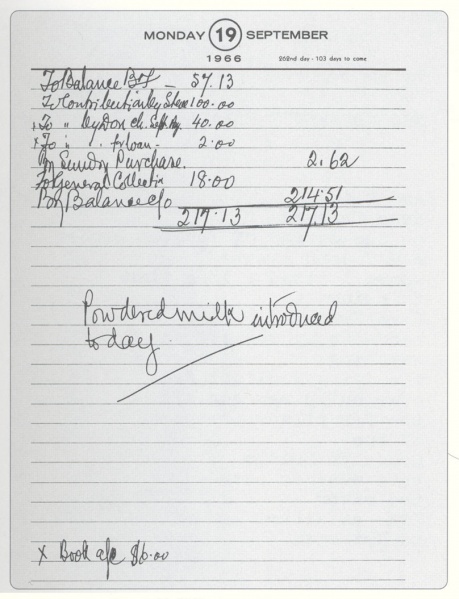 MONDAY 19 SEPTEMBER
1966
262nd day - 103 days to come
To Balance B/f — 57.13
To Contribution by Steve 100.00
x To " by Don ch. 40.00
x To " " for loan - 2.00
By Sundry Purchase. 2.62
To General Collectin 18.00
By Balance c/o 214.51
217.13 217.13
Powdered milk introduced
today
x Book a/c $6.00